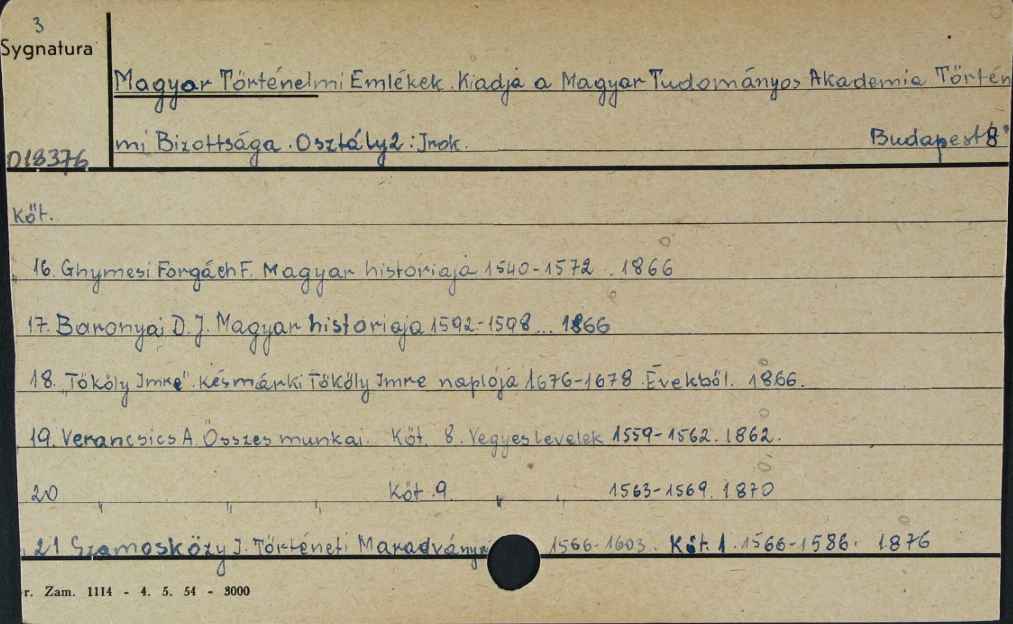 3
Sygnatura
Magyar Történelmi Emlékek. Kiadja a Magyar Tudományos Akademia Történ
mi Bizottsága. Osztály 2: Irok. Budapest 8°
D18376
Köt.
16. Ghymesi Forgách F. Magyar historiaja 1540-1572. 1866
17. Baronyai D. J. Magyar historiaja 1592-1598... 1866
18. "Tököly Imre". Késmárki Tököly Imre naplója 1676-1678. Évekből. 1866.
19. Verancsics A. Összes munkai. Köt. 8. Vegyes levelek 1559-1562. 1862.
20 " " " Köt. 9. " " 1563-1569. 1870
21 Szamosközy I. Történeti Maradványai 1566-1603. Köt. 1. 1566-1586. 1876
r. Zam. 1114 - 4. 5. 54 - 3000